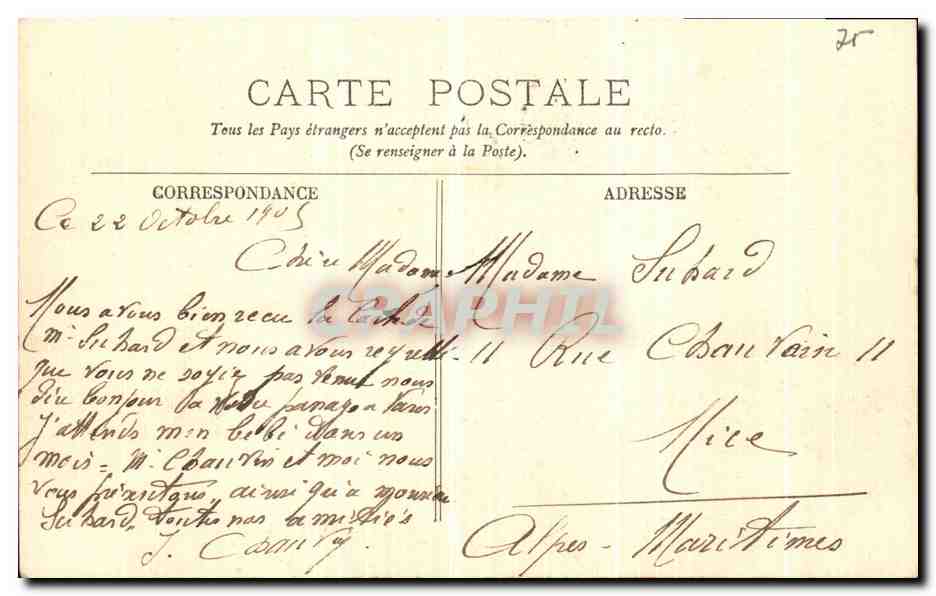 75
CARTE POSTALE
Tous les Pays étrangers n'acceptent pas la Correspondance au recto.
(Se renseigner à la Poste).
CORRESPONDANCE
Ce 22 Octobre 1905
Chère Madame
Nous avous bien recu la Carte de
Mr Suhard et nous avous regretté
que vous ne soyiez pas venue nous
dire bonjour a votre
J'attends mon bébé dans un
mois = Mr Chauvin et moi nous
vous ainsi qu'a monsieur
Suhard, toutes nos amitiés
J. Chauvin
ADRESSE
Madame Suhard
11 Rue Chauvain 11
Nice
Alpes - Maritimes
CPAPHIL